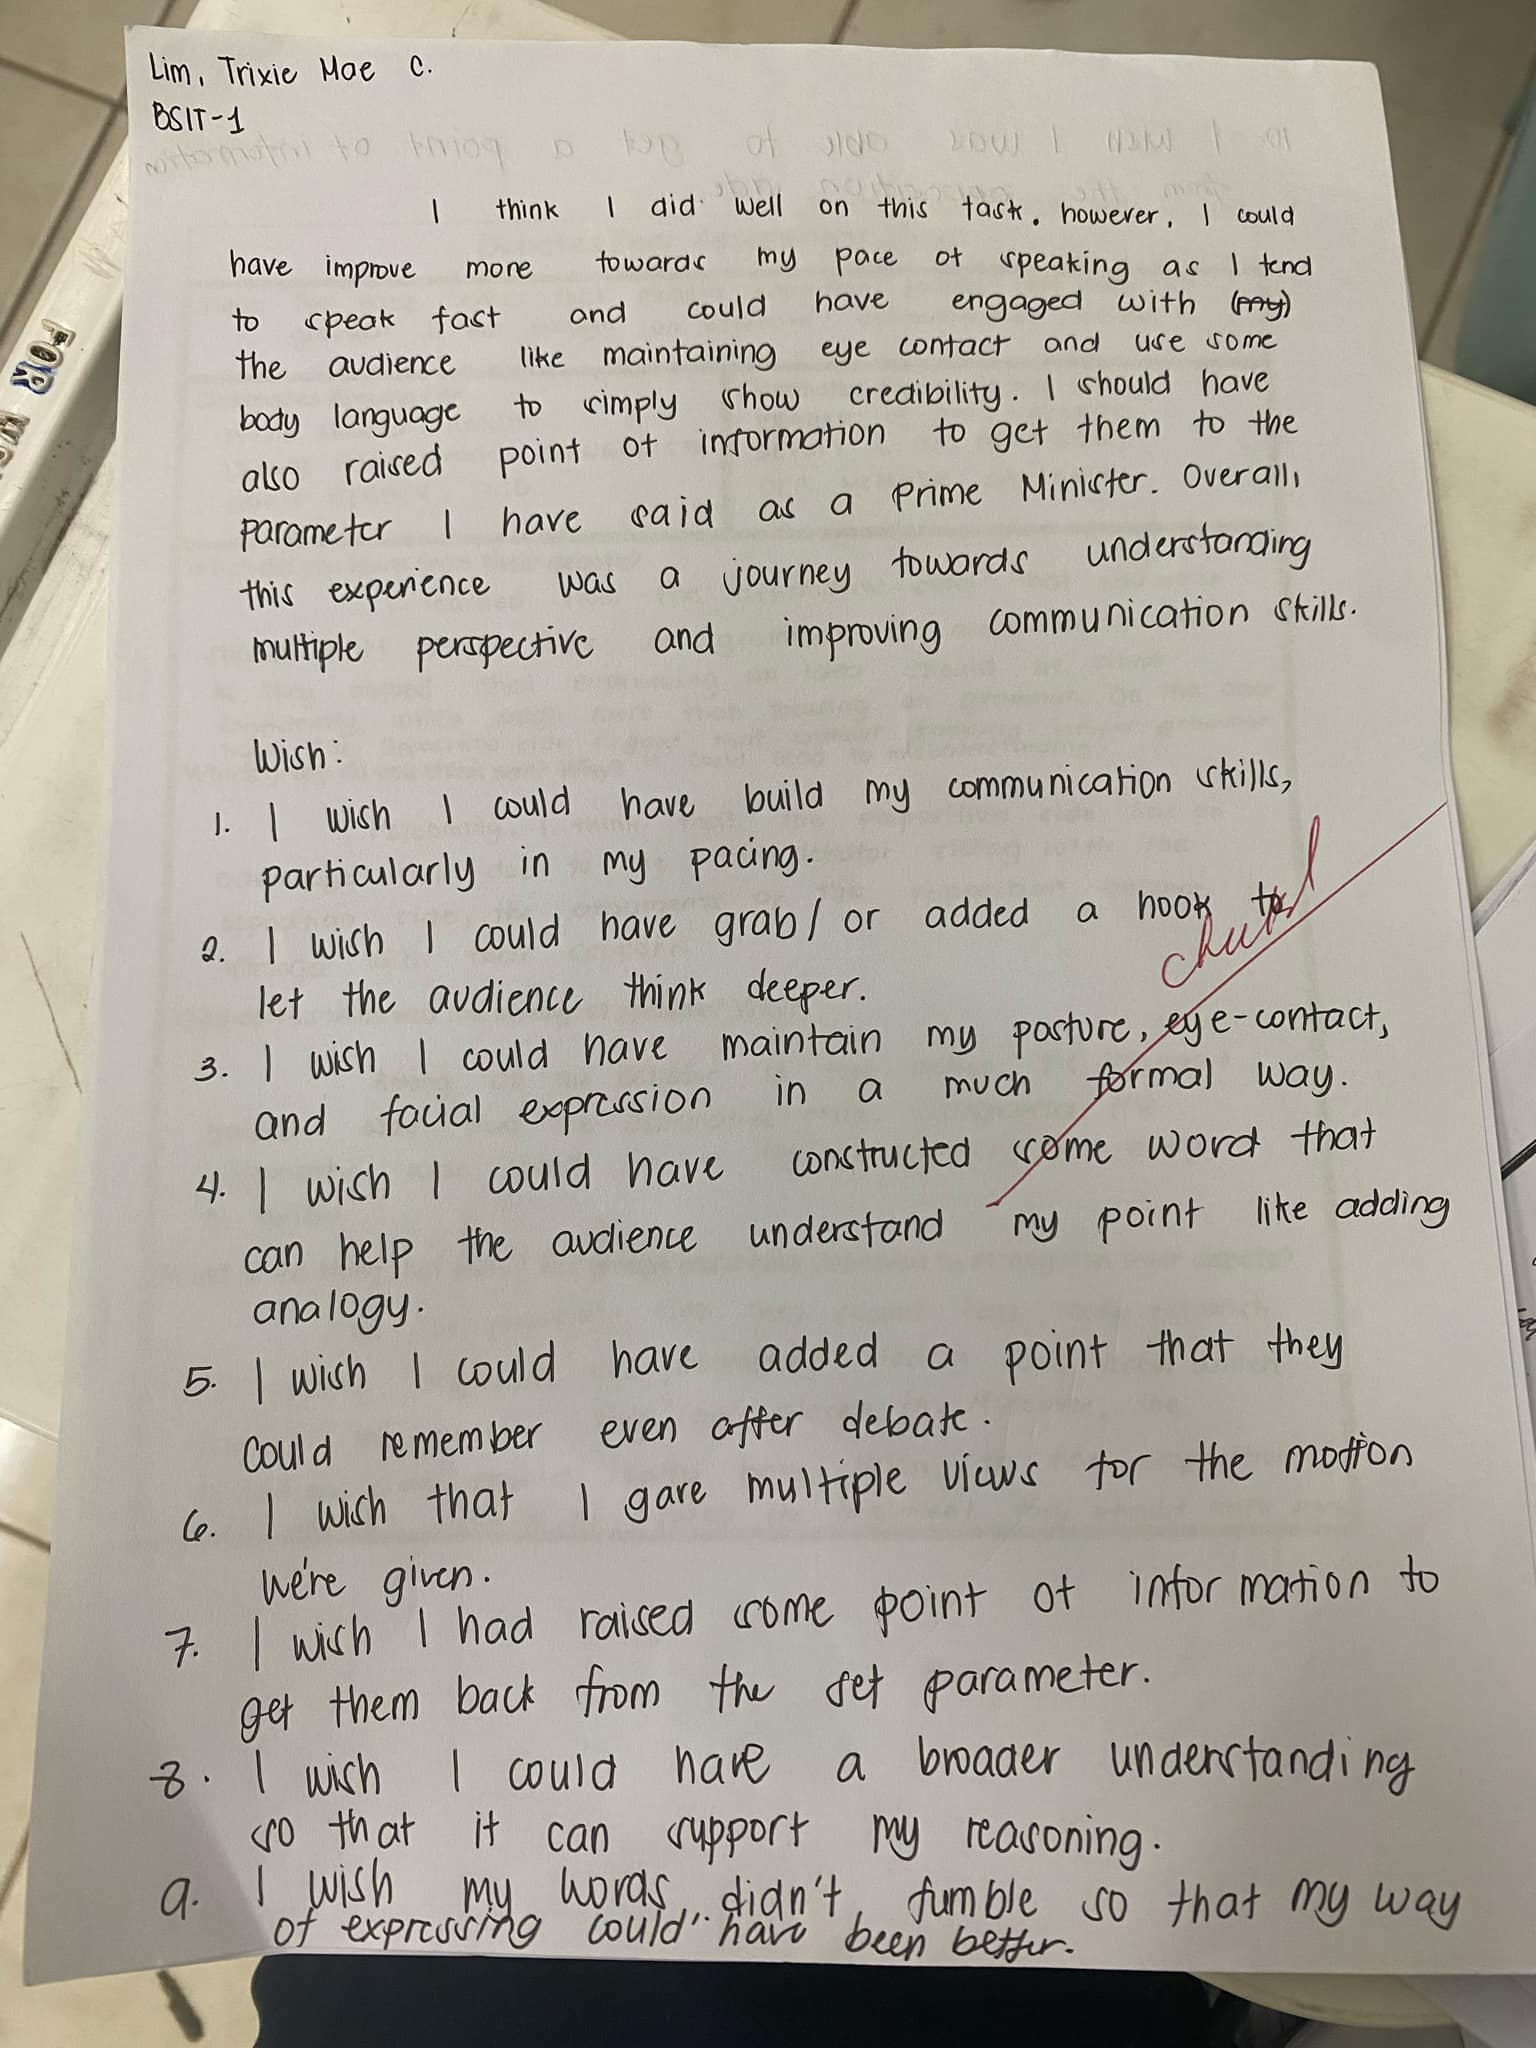 Lim, Trixie Mae C.
BSIT-1
I think I did well on this task. however, I could
have improve more towards my pace of speaking as I tend
to speak fast and could have engaged with (my)
the audience like maintaining eye contact and use some
body language to simply show credibility. I should have
also raised point of information to get them to the
parameter I have said as a Prime Minister. Overall,
this experience was a journey towards understanding
multiple perspective and improving communication skills.
Wish:
1. I wish I could have build my communication skills,
particularly in my pacing.
2. I wish I could have grab/ or added a hook to
let the audience think deeper.
3. I wish I could have maintain my posture, eye-contact,
and facial expression in a much formal way.
4. I wish I could have constructed some word that
can help the audience understand my point like adding
analogy.
5. I wish I could have added a point that they
could remember even after debate.
6. I wish that I gave multiple views for the motion
we're given.
7. I wish I had raised some point of information to
get them back from the set parameter.
8. I wish I could have a broader understanding
so that it can support my reasoning.
9. I wish my words didn't fumble so that my way
of expressing could have been better.
FOR